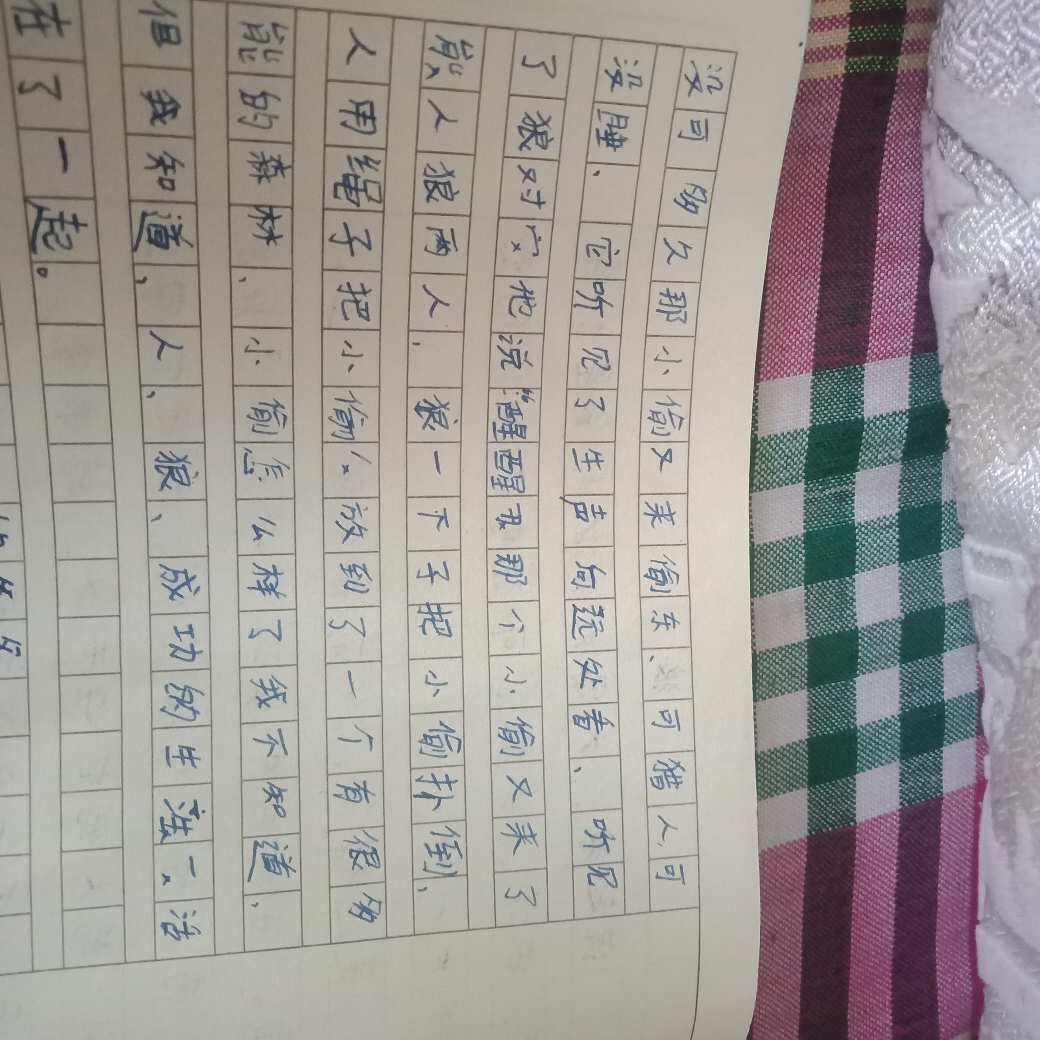 没可多久那小偷又来偷东、可猎人可
没睡、它听见了生声向远处看、听见
了狼对它他说“醒醒那个小偷又来了
人狼两人、狼一下子把小偷扑倒、
人用绳子把小偷放到了一个有很多
能的森林、小偷怎么样了我不知道、
但我知道、人、狼、成功的生活
在了一起。